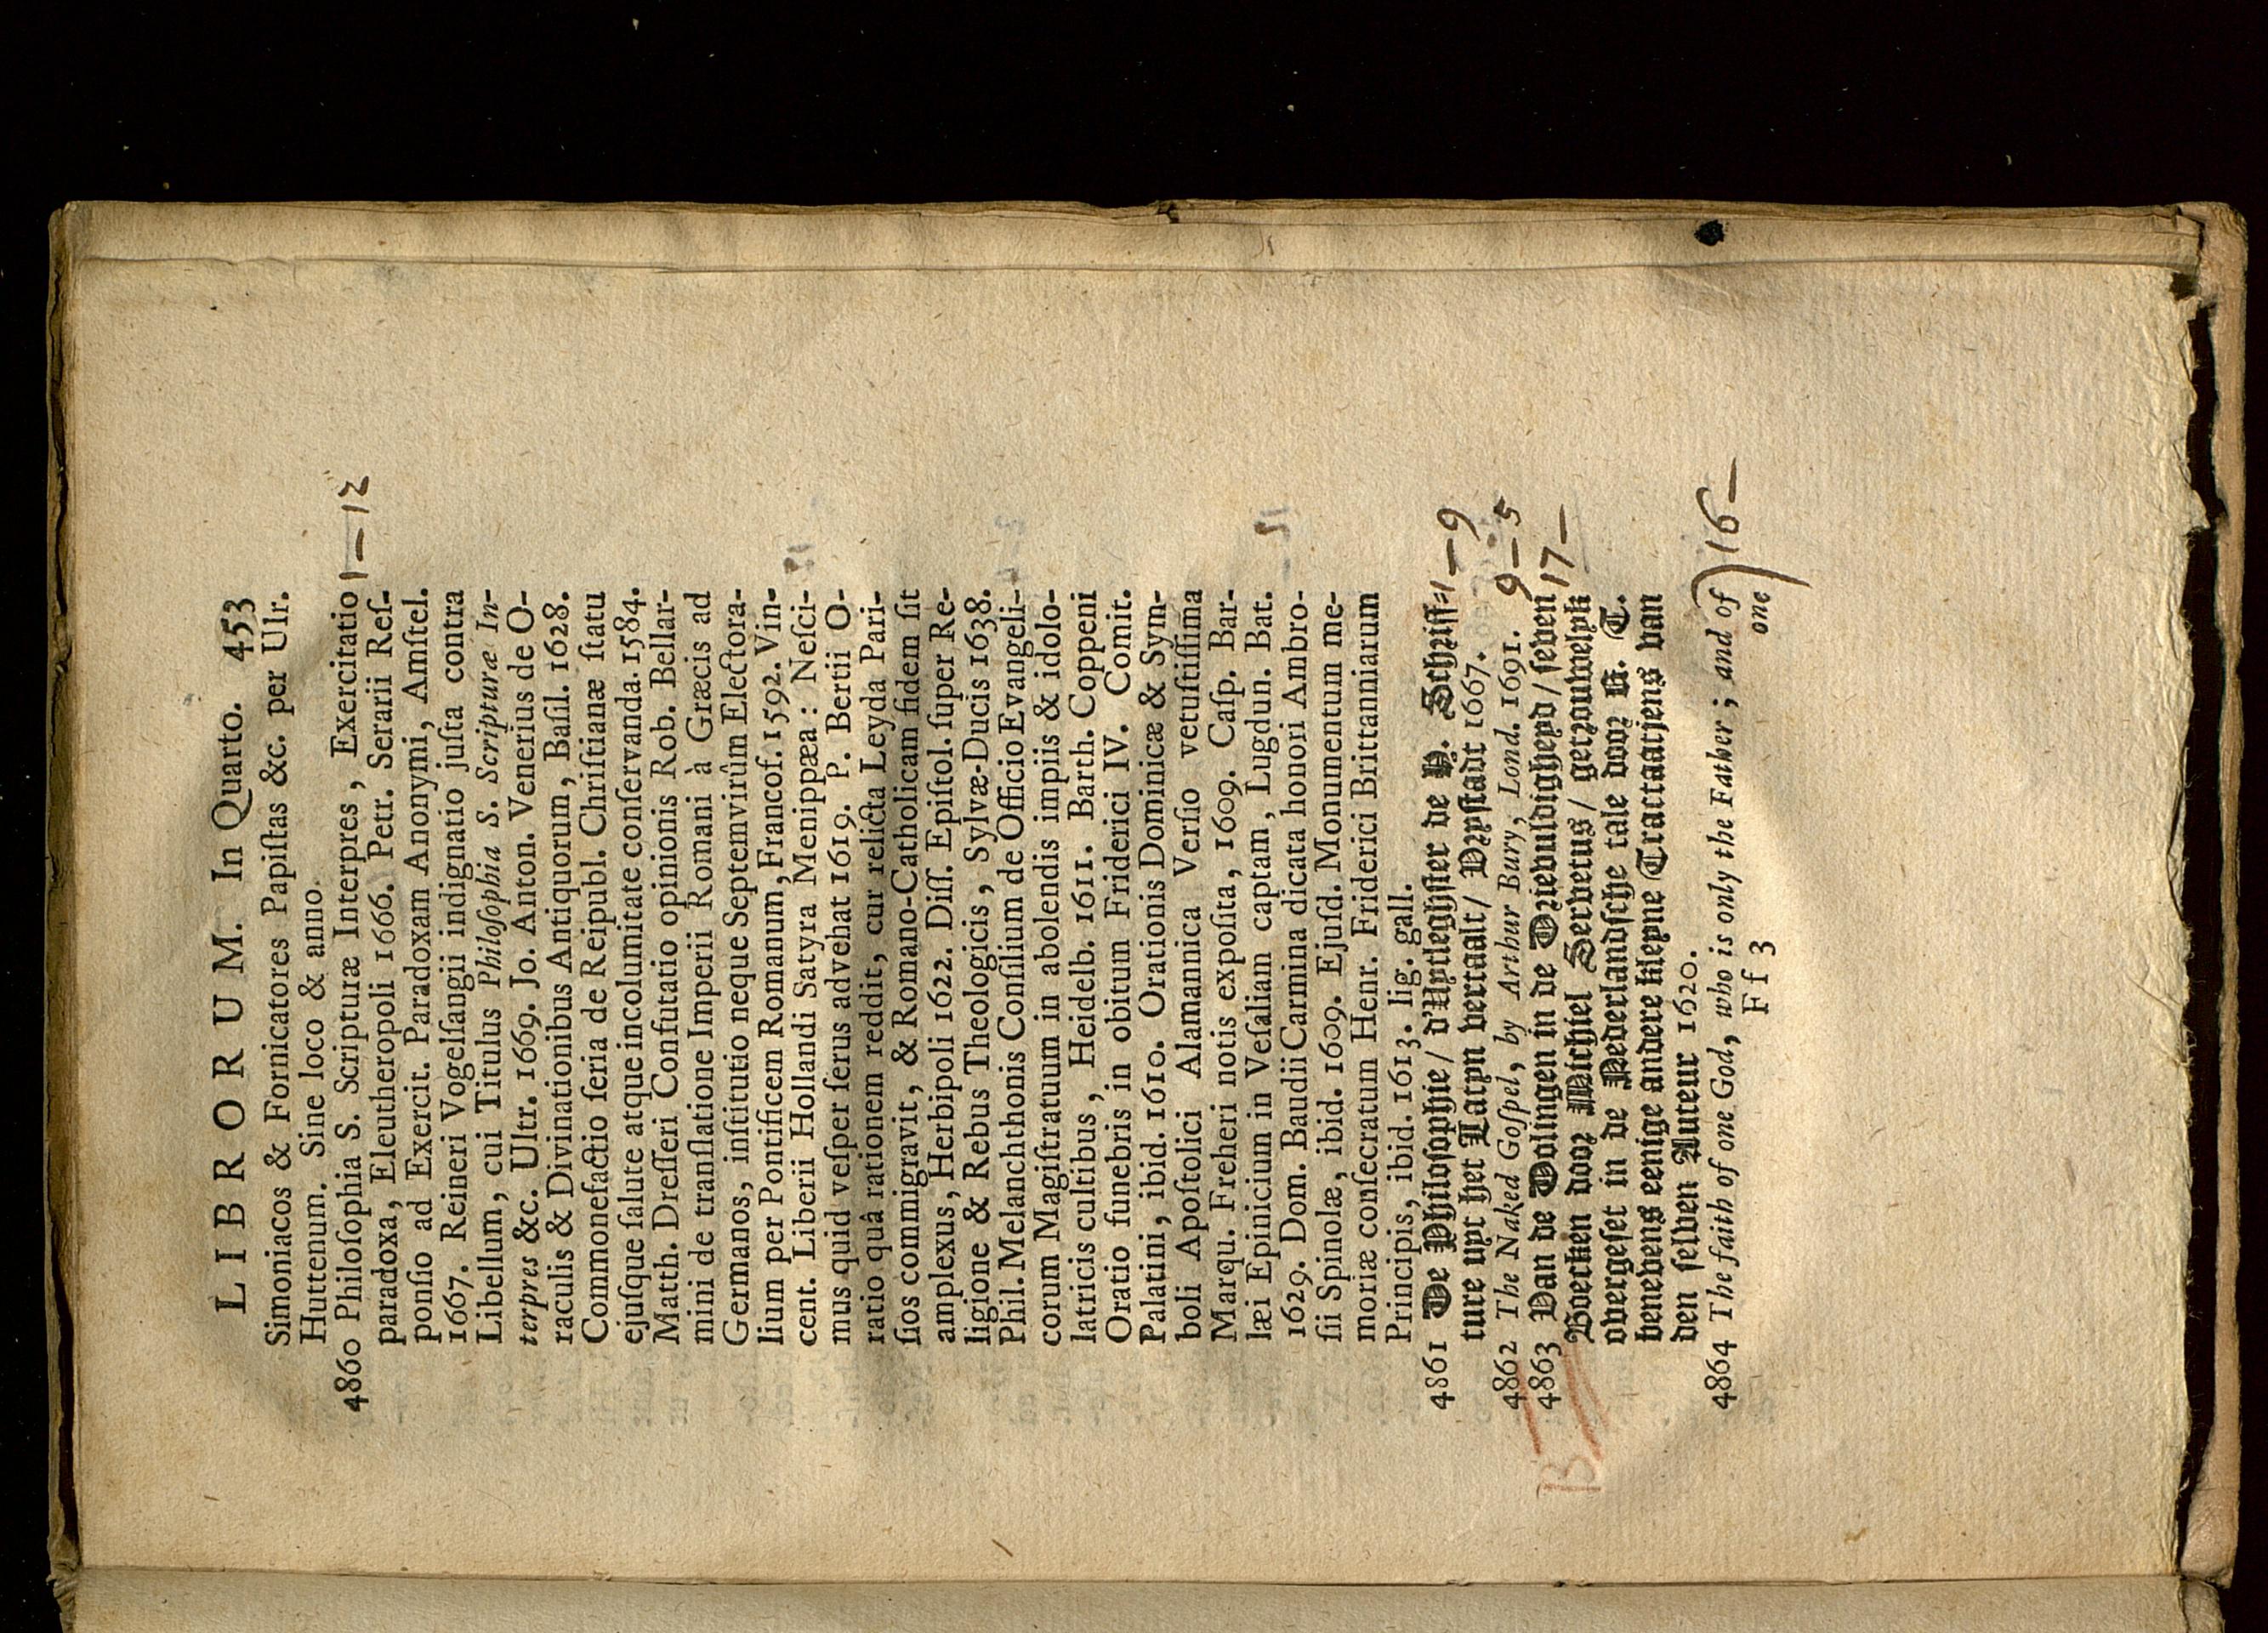 LIBRORUM. In Quarto. 453
Simoniacos & Fornicatores Papiſtas &c. per Ulr.
Huttenum. Sine loco & anno.
4860 Philoſophia S. Scripturæ Interpres, Exercitatio 1—12
paradoxa, Eleutheropoli 1666. Petr. Serarii Reſ-
ponſio ad Exercit. Paradoxam Anonymi, Amſtel.
1667. Reineri Vogelſangii indignatio juſta contra
Libellum, cui Titulus Philoſophia S. Scripturæ In-
terpres &c. Ultr. 1669. Jo. Anton. Venerius de O-
raculis & Divinationibus Antiquorum, Baſil. 1628.
Commonefactio ſeria de Reipubl. Chriſtianæ ſtatu
ejuſque ſalute atque incolumitate conſervanda. 1584.
Matth. Dreſſeri Confutatio opinionis Rob. Bellar-
mini de tranſlatione Imperii Romani à Græcis ad
Germanos, inſtitutio neque Septemvirûm Electora-
lium per Pontificem Romanum, Francof. 1592. Vin-
cent. Liberii Hollandi Satyra Menippæa: Neſci-
mus quid veſper ſerus advehat 1619. P. Bertii O-
ratio quâ rationem reddit, cur relicta Leyda Pari-
ſios commigravit, & Romano-Catholicam fidem ſit
amplexus, Herbipoli 1622. Diſſ. Epiſtol. ſuper Re-
ligione & Rebus Theologicis, Sylvæ-Ducis 1638.
Phil. Melanchthonis Conſilium de Officio Evangeli-
corum Magiſtratuum in abolendis impiis & idolo-
latricis cultibus, Heidelb. 1611. Barth. Coppeni
Oratio funebris in obitum Friderici IV. Comit.
Palatini, ibid. 1610. Orationis Dominicæ & Sym-
boli Apoſtolici Alamannica Verſio vetuſtiſſima
Marqu. Freheri notis expoſita, 1609. Caſp. Bar-
læi Epinicium in Veſaliam captam, Lugdun. Bat.
1629. Dom. Baudii Carmina dicata honori Ambro-
ſii Spinolæ, ibid. 1609. Ejuſd. Monumentum me-
moriæ conſecratum Henr. Friderici Brittanniarum
Principis, ibid. 1613. lig. gall.
4861 De Philoſophie / d'Uytleghſter de H. Schrift- 1—9
ture uyt het Latyn vertaalt / Vryſtadt 1667.
4862 The Naked Goſpel, by Arthur Bury, Lond. 1691. 9—5
4863 Van de Dolingen in de Drievuldigheyd / ſeven 17—
Boecken door Michiel Servetus / getrouwelyk
overgeſet in de Nederlandſche tale door R. T.
benevens eenige andere kleyne Tractaatjens van
den ſelven Auteur 1620.
4864 The faith of one God, who is only the Father; and of 16—
F f 3 one
B